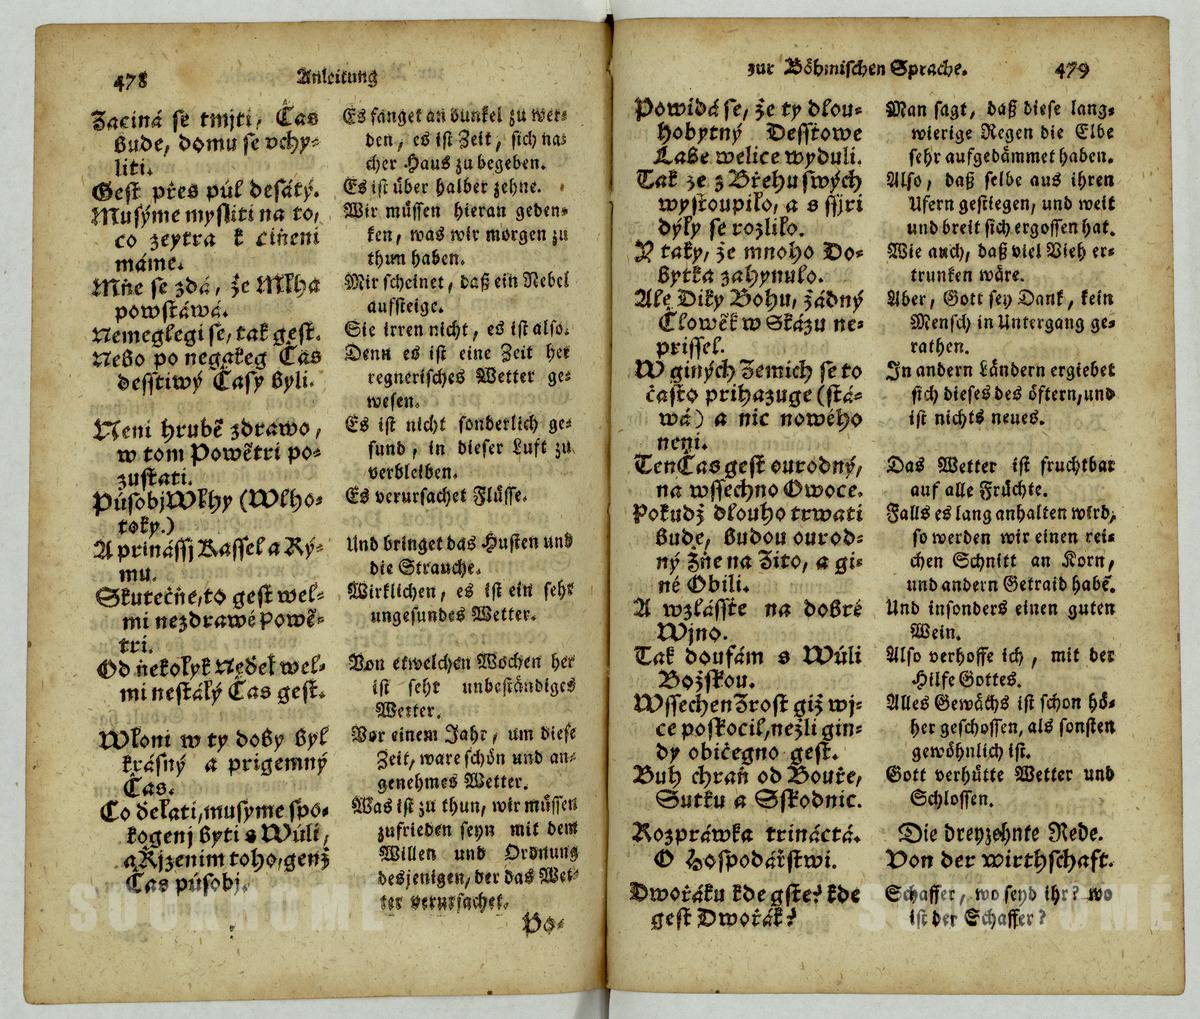 478 Anleitung
Začiná se tmjti, Čas
bude, domu se vchy-
liti.
Gest přes půl desáty.
Musýme mysliti na to,
co zeytra k činěni
máme.
Mňe se zdá, že Mlha
powstáwá.
Nemeglegi se, tak gest.
Nebo po negakeg Čas
desstiwý Časy byli.
Neni hrubě zdrawo,
w tom Powětri po-
zustati.
Působj Wlhy (Wlho-
toky.)
A prinássj Kassel a Rý-
mu.
Skutečňe, to gest wel-
mi nezdrawé Powě-
tri.
Od ňekolyk Neďel wel-
mi nestálý Čas gest.
Wloni w ty doby byl
krásný a prigemný
Čas.
Co ďelati, musyme spo-
kogenj byti s Wůli,
a Rjzenim toho, genž
Čas působj.
Es fanget an dunkel zu wer-
den, es ist Zeit, sich na-
cher Haus zu begeben.
Es ist über halber zehne.
Wir müssen hieran geden-
ken, was wir morgen zu
thun haben.
Mir scheinet, daß ein Nebel
aufsteige.
Sie irren nicht, es ist also.
Denn es ist eine Zeit her
regnerisches Wetter ge-
wesen.
Es ist nicht sonderlich ge-
sund, in dieser Luft zu
verbleiben.
Es verursachet Flüsse.
Und bringet das Husten und
die Strauche.
Wirklichen, es ist ein sehr
ungesundes Wetter.
Von etwelchen Wochen her
ist sehr unbeständiges
Wetter.
Vor einem Jahr, um diese
Zeit, ware schön und an-
genehmes Wetter.
Was ist zu thun, wir müssen
zufrieden seyn mit dem
Willen und Ordnung
desjenigen, der das Wet-
ter verursachet.
Po-
zur Böhmischen Sprache. 479
Powidá se, že ty dlou-
hobytný Desstowe
Labe welice wyduli.
Tak že z Břehu swých
wystoupilo, a s ssjri
dýly se rozlilo.
Y taky, že mnoho Do-
bytka zahynulo.
Ale Diky Bohu, žádný
Člowěk w Skázu ne-
prissel.
W giných Zemich se to
často prihazuge (stá-
wá) a nic nowého
neni.
Ten Čas gest ourodný,
na wssechno Owoce.
Pokudž dlouho trwati
bude, budou ourod-
ný Žňe na Žito, a gi-
né Obili.
A wzlásste na dobré
Wjno.
Tak doufám s Wůli
Božskou.
Wssechen Zrost giž wj-
ce poskocil, nežli gin-
dy običegno gest.
Buh chraň od Bouře,
Sutku a Sskodnic.
Rozpráwka trináctá.
O Hospodářstwi.
Dworáku kde gste? kde
gest Dworák?
Man sagt, daß diese lang-
wierige Regen die Elbe
sehr aufgedämmet haben.
Also, daß selbe aus ihren
Ufern gestiegen, und weit
und breit sich ergossen hat.
Wie auch, daß viel Vieh er-
trunken wäre.
Aber, Gott sey Dank, kein
Mensch in Untergang ge-
rathen.
In andern Ländern ergiebet
sich dieses des öftern, und
ist nichts neues.
Das Wetter ist fruchtbar
auf alle Früchte.
Falls es lang anhalten wird,
so werden wir einen rei-
chen Schnitt an Korn,
und andern Getraid habē.
Und insonders einen guten
Wein.
Also verhoffe ich, mit der
Hilfe Gottes.
Alles Gewächs ist schon hö-
her geschossen, als sonsten
gewöhnlich ist.
Gott verhütte Wetter und
Schlossen.
Die dreyzehnte Rede.
Von der wirthschaft.
Schaffer, wo seyd ihr? wo
ist der Schaffer?